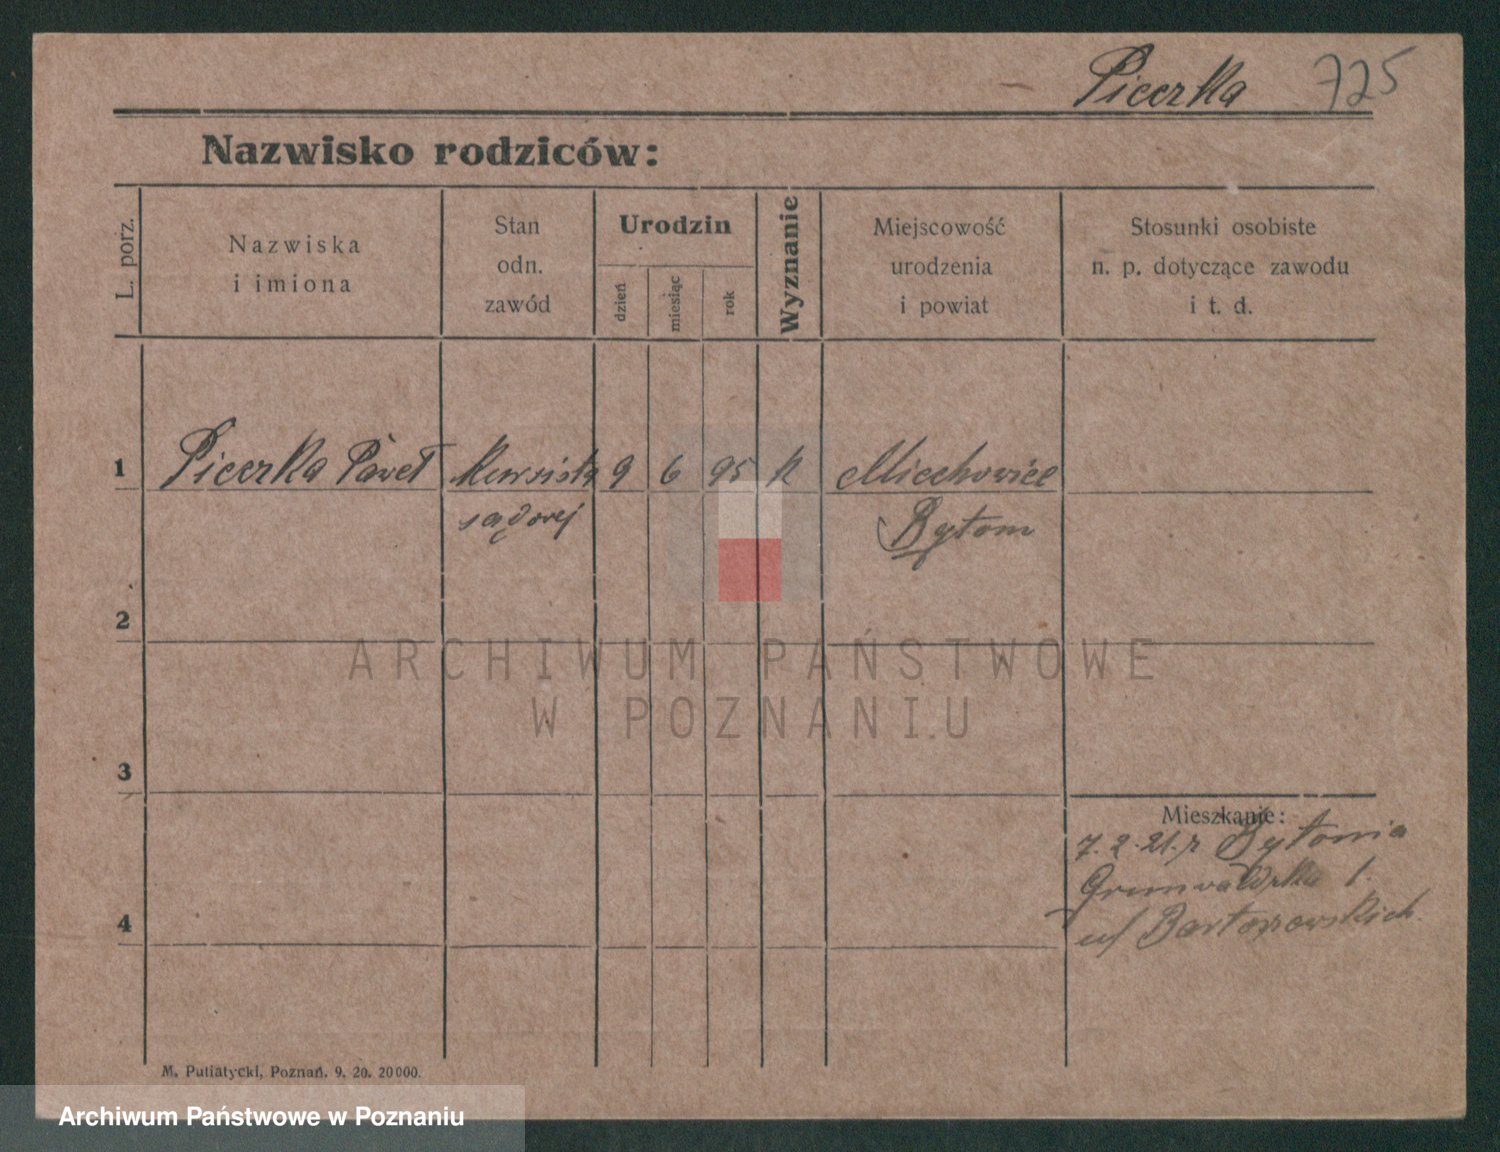 Piecrka 725
Nazwisko rodziców:
L. porz.
Nazwiska
i imiona
Stan
odn.
zawód
Urodzin
dzień
miesiąc
rok
Wyznanie
Miejscowość
urodzenia
i powiat
Stosunki osobiste
n. p. dotyczące zawodu
i t. d.
1 Piecrka Paweł kursista 9 6 95 k Miechowice
sądowej Bytom
2
ARCHIWUM PAŃSTWOWE
W POZNANIU
3
Mieszkanie:
7.2.21.r Bytomia
Grunwaldzka 1.
4
u/ Bartoszewskich
M. Putiatycki, Poznań. 9. 20. 20000.
Archiwum Państwowe w Poznaniu